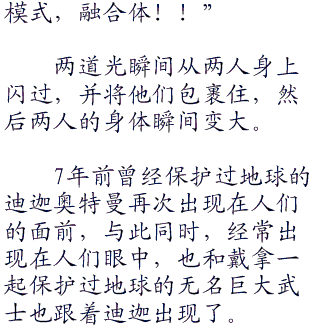 模式，融合体！！”
两道光瞬间从两人身上
闪过，并将他们包裹住，然
后两人的身体瞬间变大。
7年前曾经保护过地球的
迪迦奥特曼再次出现在人们
的面前，与此同时，经常出
现在人们眼中，也和戴拿一
起保护过地球的无名巨大武
士也跟着迪迦出现了。